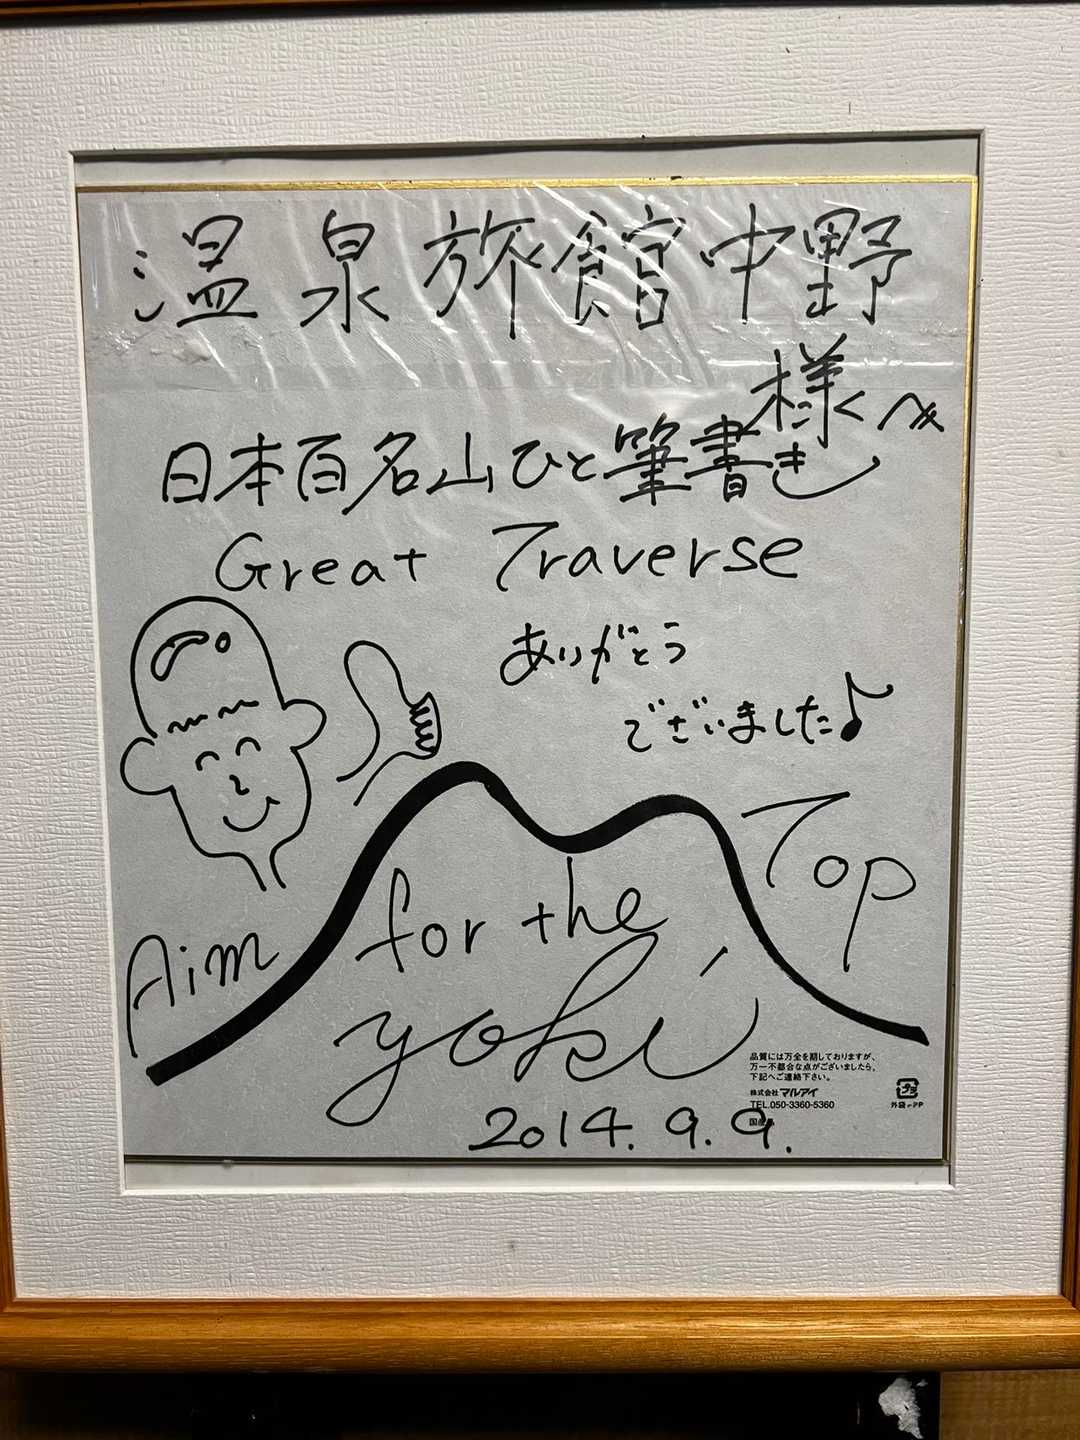 温泉旅館中野
様へ
日本百名山ひと筆書き
Great Traverse
ありがとう
ございました♪
Aim for the Top
yoki
2014.9.9.
品質には万全を期しておりますが、
万一不都合な点がございましたら、
下記へご連絡下さい。
株式会社 マルアイ
TEL.050-3360-5360
国産品
プラ
外袋-PP